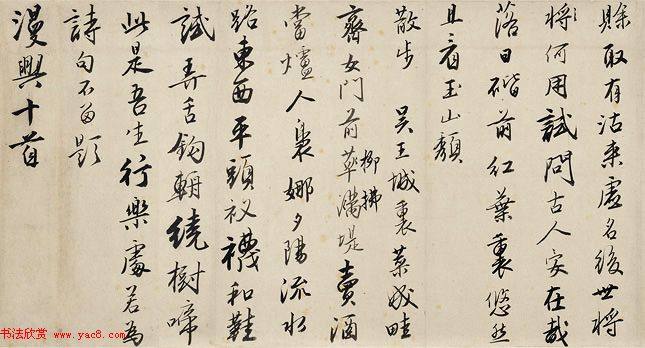 賒取有沽来虚名後世將
將何用試問古人安在哉
落日階前紅葉裏悠然
且看玉山頹
散步 吴王城裏菜成畦
齊女門前草滿堤賣酒
柳拂
當爐人裊娜夕陽流水
路東西平頭衩襪和鞋
試弄舌鉤輈繞樹啼
此是吾生行樂處若為
詩句不留題
漫興十首
书法欣赏
www.yac8.com